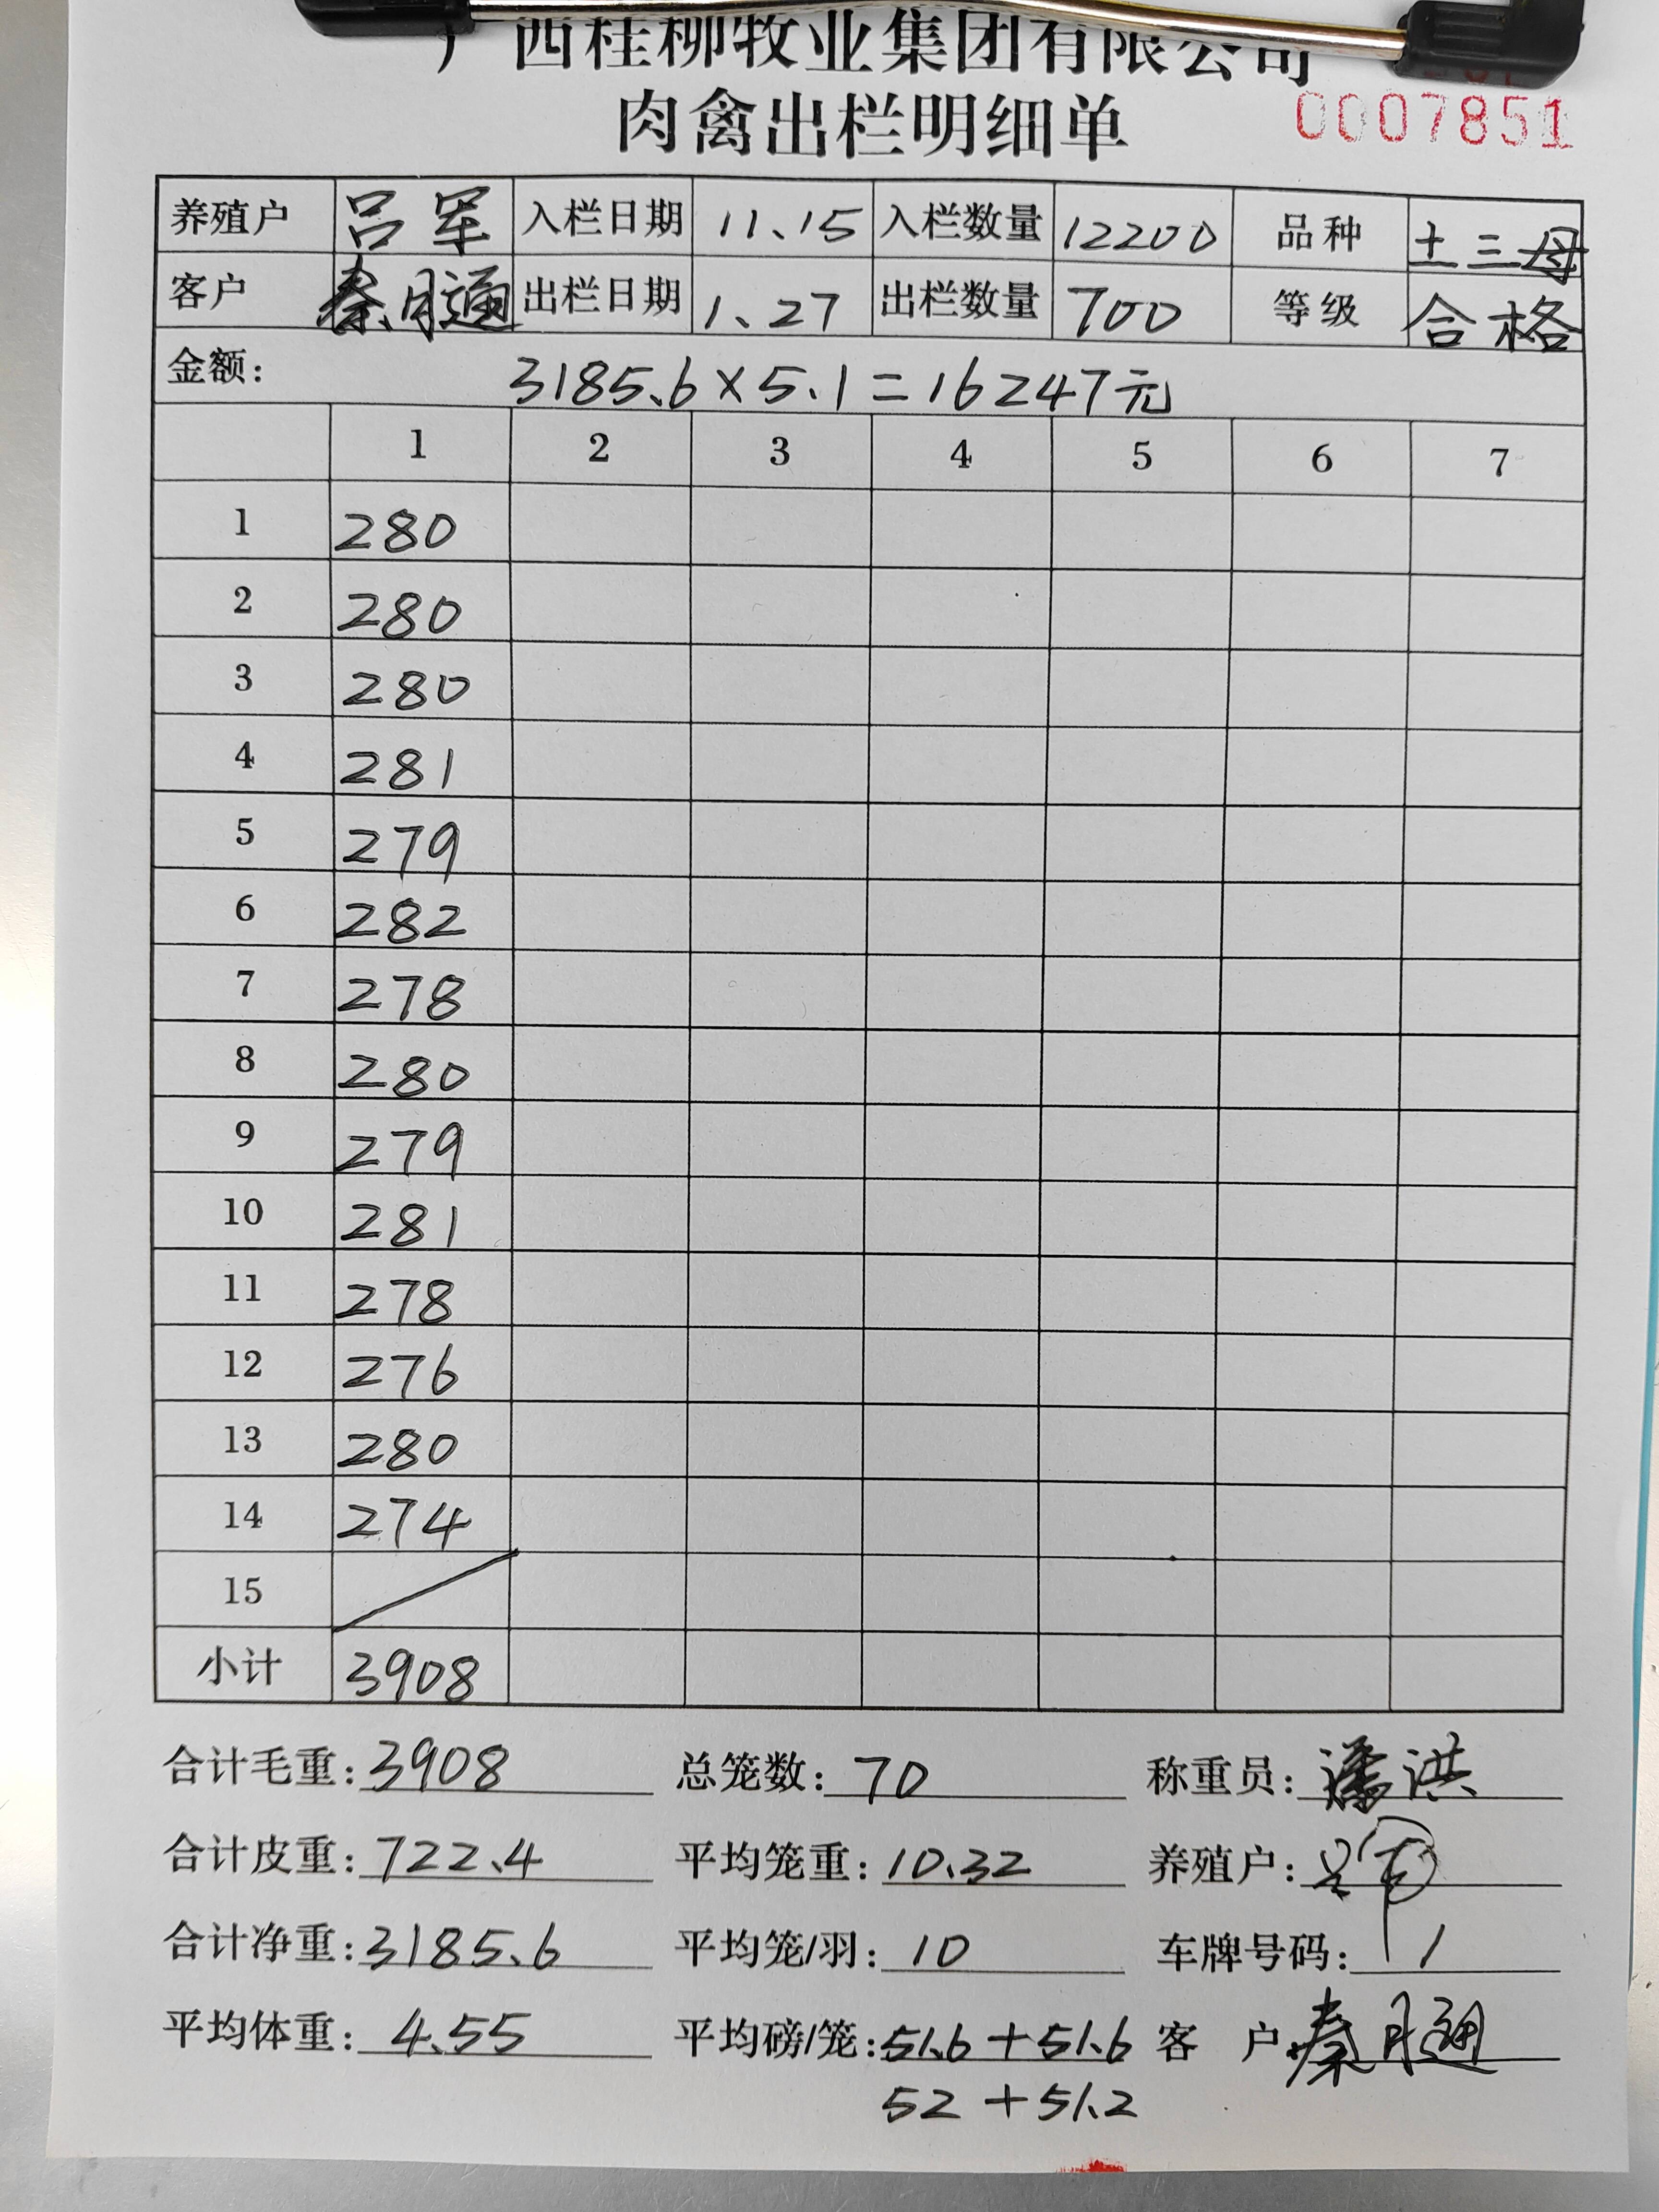 广西桂柳牧业集团有限公司
肉禽出栏明细单
0007851
养殖户 吕军 入栏日期 11.15 入栏数量 12200 品种 土三母
客户 秦月通 出栏日期 1.27 出栏数量 700 等级 合格
金额: 3185.6×5.1=16247元
1 2 3 4 5 6 7
1 280
2 280
3 280
4 281
5 279
6 282
7 278
8 280
9 279
10 281
11 278
12 276
13 280
14 274
15
小计 3908
合计毛重: 3908 总笼数: 70 称重员: 潘洪
合计皮重: 722.4 平均笼重: 10.32 养殖户: 吕军
合计净重: 3185.6 平均笼/羽: 10 车牌号码: /
平均体重: 4.55 平均磅/笼: 51.6+51.6 客 户: 秦月通
52+51.2